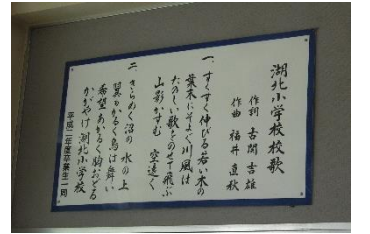 湖北小学校校歌
作詞 古関吉雄
作曲 福井直秋
一、すくすく伸びる若い木の
葉末にそよぐ川風は
たのしい歌をのせて飛ぶ
山影かすむ 空遠く
二、きらめく沼の水の上
翼もかるく鳥は舞い
希望あかるく胸おどる
かがやけ 湖北小学校
平成二年度卒業生一同